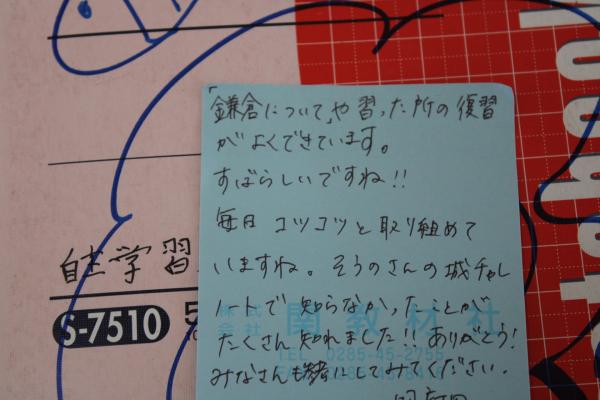 「鎌倉について」や習った所の復習
がよくできています。
すばらしいですね!!
毎日 コツコツと取り組めて
いますね。そうのさんの城チャレ
ノートで知らなかったことが
たくさん知れました!!ありがとう!
みなさんも一緒にしてみてください。
自主学習
S-7510
株式会社 関教材社
TEL 0285-45-2755